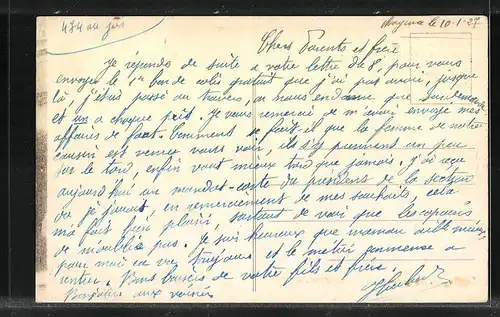 474 au jus
Mayence le 10-1-27
Chers Parents et frère
Je réponds de suite a votre lettre du 8, pour vous
envoyer le 1er bon de colis gratuit que j'ai pu avoir, jusque
là, j'étais passé au travers, on nous en donne que
et un a chaque fois. Je vous remercie de m'avoir envoyé mes
affaires de foot. Comment se fait-il que la femme de notre
cousin est venue vous voir, ils s'y prennent un peu
sur le tard, enfin vaut mieux tard que jamais. J'ai reçu
aujourd'hui un mandat-carte du président de la section
ou je jouais, en remerciement de mes souhaits, cela
m'a fait bien plaisir, surtout de voir que les copains
ne m'oublie pas. Je suis heureux que maman aille mieux,
pour moi ca va toujours et le métier commence a
rentrer. Bons baisers de votre fils et frère.
Bonjour aux voisins